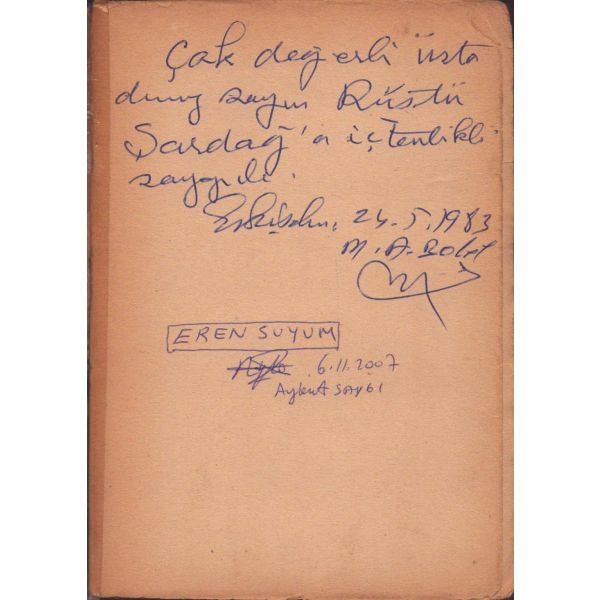 Çok değerli üsta
dımız sayın Rüştü
Şardağ'a içtenlikli
saygı ile.
Eskişehir, 24.5.1983
M. A.
EREN SUYUM
6.11.2007
Aykut SAYGI